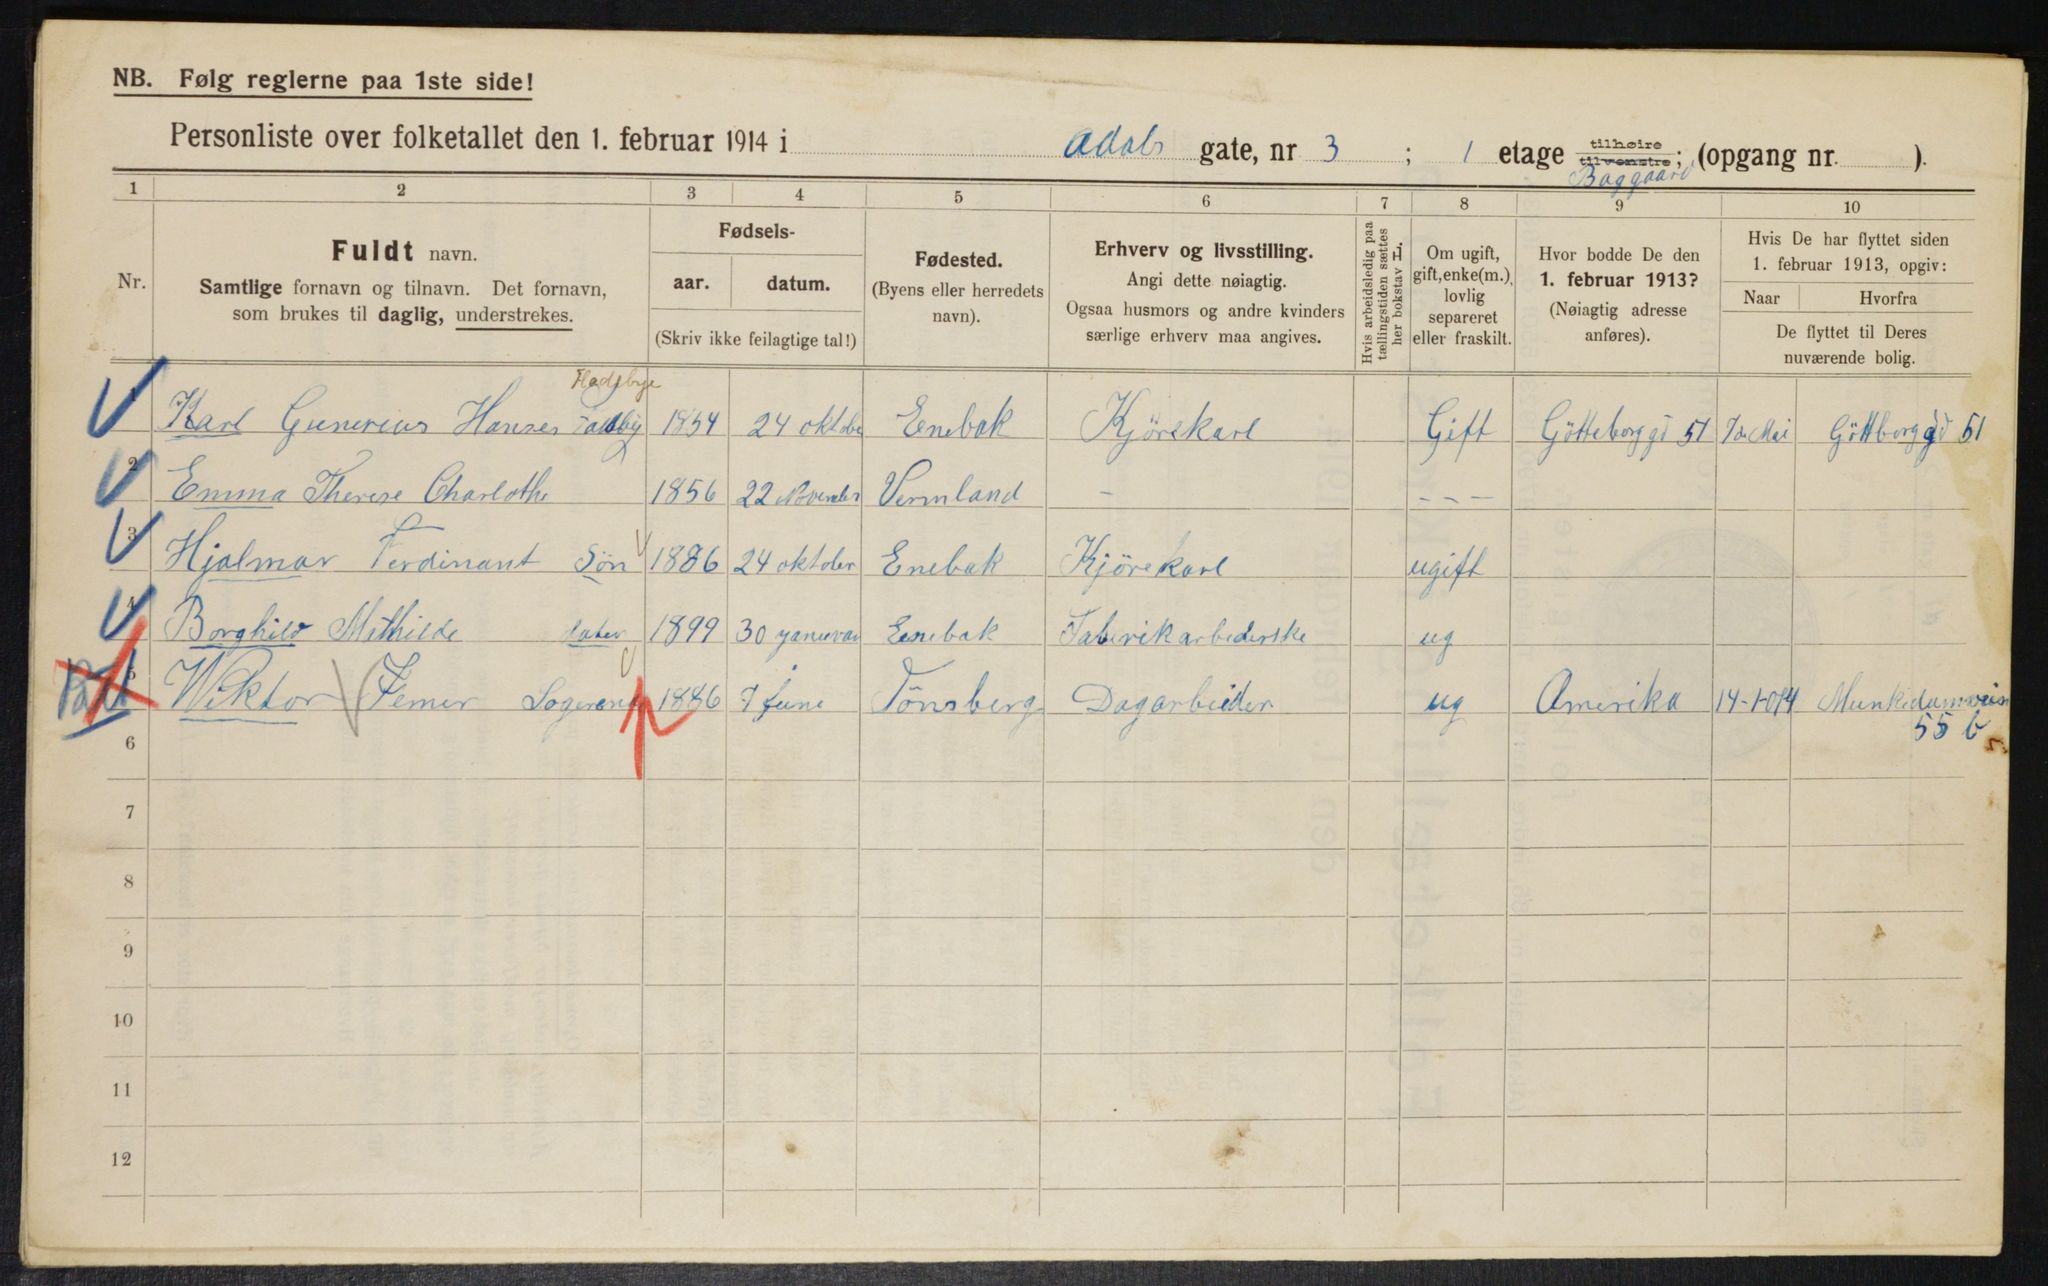 NB. Følg reglerne paa 1ste side!
Personliste over folketallet den 1. februar 1914 i Adals gate, nr 3 ; 1 etage tilhøire tilvenstre; (opgang nr. ).
Baggaard
1 2 3 4 5 6 7 8 9 10
Nr.
Fuldt navn.
Samtlige fornavn og tilnavn. Det fornavn,
som brukes til daglig, understrekes.
Fødsels-
aar. datum.
(Skriv ikke feilagtige tal!)
Fødested.
(Byens eller herredets
navn).
Erhverv og livsstilling.
Angi dette nøiagtig.
Ogsaa husmors og andre kvinders
særlige erhverv maa angives.
Hvis arbeidsledig paa
tællingstiden sættes
her bokstav L.
Om ugift,
gift, enke(m.),
lovlig
separeret
eller fraskilt.
Hvor bodde De den
1. februar 1913?
(Nøiagtig adresse
anføres).
Hvis De har flyttet siden
1. februar 1913, opgiv:
Naar Hvorfra
De flyttet til Deres
nuværende bolig.
Fladsbye
1 Karl Gunerius Hansen 1854 24 oktober Enebak Kjörekarl Gift Götteborggd 51 Mai Göttborggd 51
2 Emma Therese Charlothe 1856 22 November Vermland – – – –
3 Hjalmar Ferdinant Sön 1886 24 oktober Enebak Kjörekarl ugift
4 Borghild Mathilde dater 1899 30 januvar Enebak Faberikarbederske ug
5 Wiktor Femer Logerende 1886 7 june Tönsberg Dagarbeider ug Amerika 14-1-014 Munkedamsveien
55 b
6
7
8
9
10
11
12